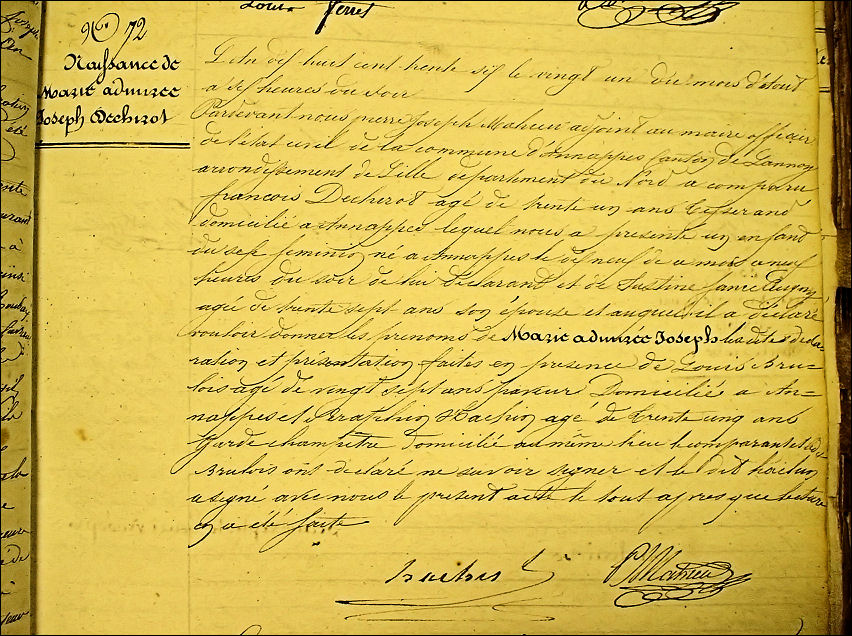 Louis Ferret
No 72
Naissance de
Marie admirée
Joseph Dechirot
L'An dix huit cent trente six le vingt un du mois d'aout
a six heures du soir
Pardevant nous pierre Joseph Mahieu adjoint au maire officier
de l'état civil de la commune d'Annappes Canton de Lannoy
arrondissement de Lille departement du Nord a comparu
françois Decherot agé de trente un ans Tisserand
domicilié a Annappes lequel nous a presenté un enfant
du sexe feminin né a Annappes le dix neuf de ce mois a neuf
heures du soir de lui declarant et de Justine
agée de trente sept ans son épouse et auquel il a declaré
vouloir donner les prenoms de Marie admirée Joseph les dites decla-
ration et présentation faites en presence de Louis Bru-
lois agé de vingt sept ans paveur Domicilié a An-
nappes et Seraphin Hachin agé de trente cinq ans
Garde champêtre domicilié au même lieu le comparant et
Brulois ont declaré ne savoir signer et le dit hachin
a signé avec nous le present acte le tout apres que lecture
en a été faite
hachin
PJ Mahieu